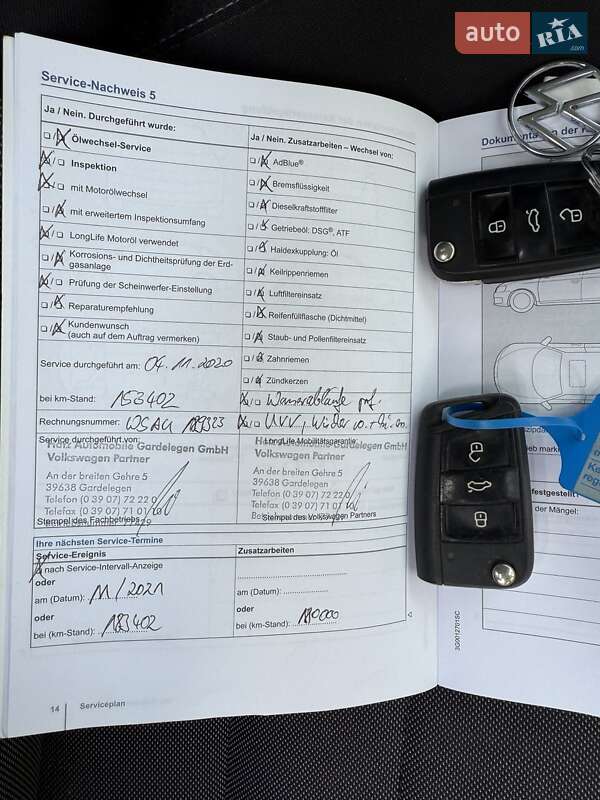 auto RIA.com
Service-Nachweis 5
Ja / Nein. Durchgeführt wurde:
Ölwechsel-Service
Inspektion
mit Motorölwechsel
mit erweitertem Inspektionsumfang
LongLife Motoröl verwendet
Korrosions- und Dichtheitsprüfung der Erd-
gasanlage
Prüfung der Scheinwerfer-Einstellung
Reparaturempfehlung
Kundenwunsch
(auch auf dem Auftrag vermerken)
Service durchgeführt am: 04.11.2020
bei km-Stand: 153402
Rechnungsnummer: WSAU
Service durchgeführt von:
Automobile Gardelegen GmbH
Volkswagen Partner
An der breiten Gehre 5
39638 Gardelegen
Telefon (0 39 07) 72 22 0
Telefax (0 39 07) 71 01
Stempel des Fachbetriebs
Ja / Nein. Zusatzarbeiten – Wechsel von:
AdBlue®
Bremsflüssigkeit
Dieselkraftstofffilter
Getriebeöl: DSG®, ATF
Haldexkupplung: Öl
Keilrippenriemen
Luftfiltereinsatz
Reifenfüllflasche (Dichtmittel)
Staub- und Pollenfiltereinsatz
Zahnriemen
Zündkerzen
Wasserabläufe prf.
UVV,
LongLife Mobilitätsgarantie:
Automobile Gardelegen GmbH
Volkswagen Partner
An der breiten Gehre 5
39638 Gardelegen
Telefon (0 39 07) 72 22
Telefax (0 39 07) 71 01
Stempel des Volkswagen Partners
Ihre nächsten Service-Termine
Service-Ereignis
nach Service-Intervall-Anzeige
oder
am (Datum): 11/2021
oder
bei (km-Stand): 183402
Zusatzarbeiten
am (Datum):
oder
bei (km-Stand):
14 Serviceplan
Dokumentation der
3G0012701SC
der Mängel: